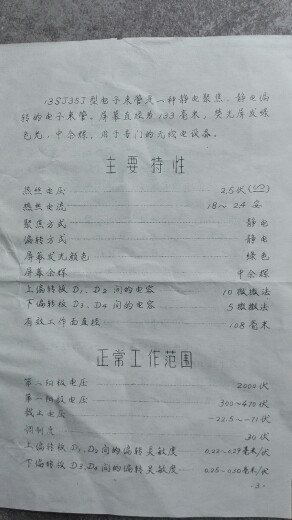 13SJ35J型电子束管是一种静电聚焦、静电偏
转的电子束管。屏幕直径为133毫米，荧光屏发绿
色光，中余辉，用于专门的无线电设备。
主要特性
热丝电压 2.5伏
热丝电流 1.8~2.4安
聚焦方式 静电
偏转方式 静电
屏幕发光颜色 绿色
屏幕余辉 中余辉
上偏转板D₁、D₂间的电容 10微微法
下偏转板D₃、D₄间的电容 5微微法
有效工作面直径 108毫米
正常工作范围
第二阳极电压 2000伏
第一阳极电压 300~470伏
截止电压 -22.5~-71伏
调制度 30伏
上偏转板D₁、D₂间的偏转灵敏度 0.22~0.29毫米/伏
下偏转板D₃、D₄间的偏转灵敏度 毫米/伏